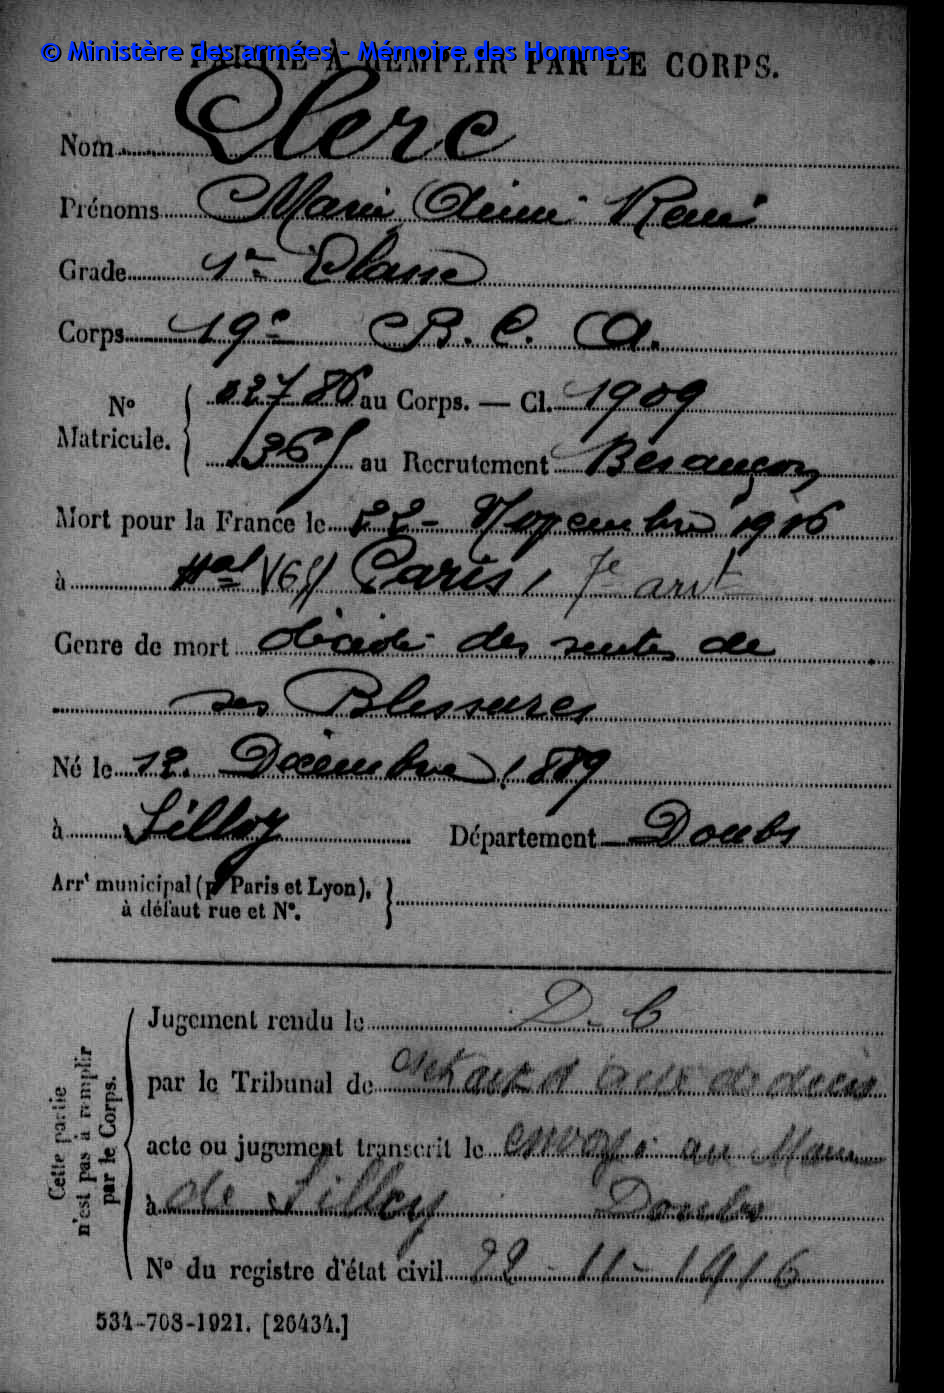 © Ministère des armées - Mémoire des Hommes
PARTIE À REMPLIR PAR LE CORPS.
Nom Clerc
Prénoms Marie René
Grade 1re Classe
Corps 19e B. C. A.
No Matricule. 02786 au Corps. — Cl. 1909
1365 au Recrutement Besançon
Mort pour la France le 22 - Novembre 1916
à Hal VG Paris, 7e arrt
Genre de mort décédé des suites de
ses Blessures
Né le 12 Décembre 1889
à Silley Département Doubs
Arrt municipal (pr Paris et Lyon),
à défaut rue et No.
Cette partie
n'est pas à remplir
par le Corps.
Jugement rendu le D. C
par le Tribunal de extrait d'acte de décès
acte ou jugement transcrit le envoyé au Maire
à de Silley Doubs
No du registre d'état civil 22 - 11 - 1916
534-708-1921. [26434.]